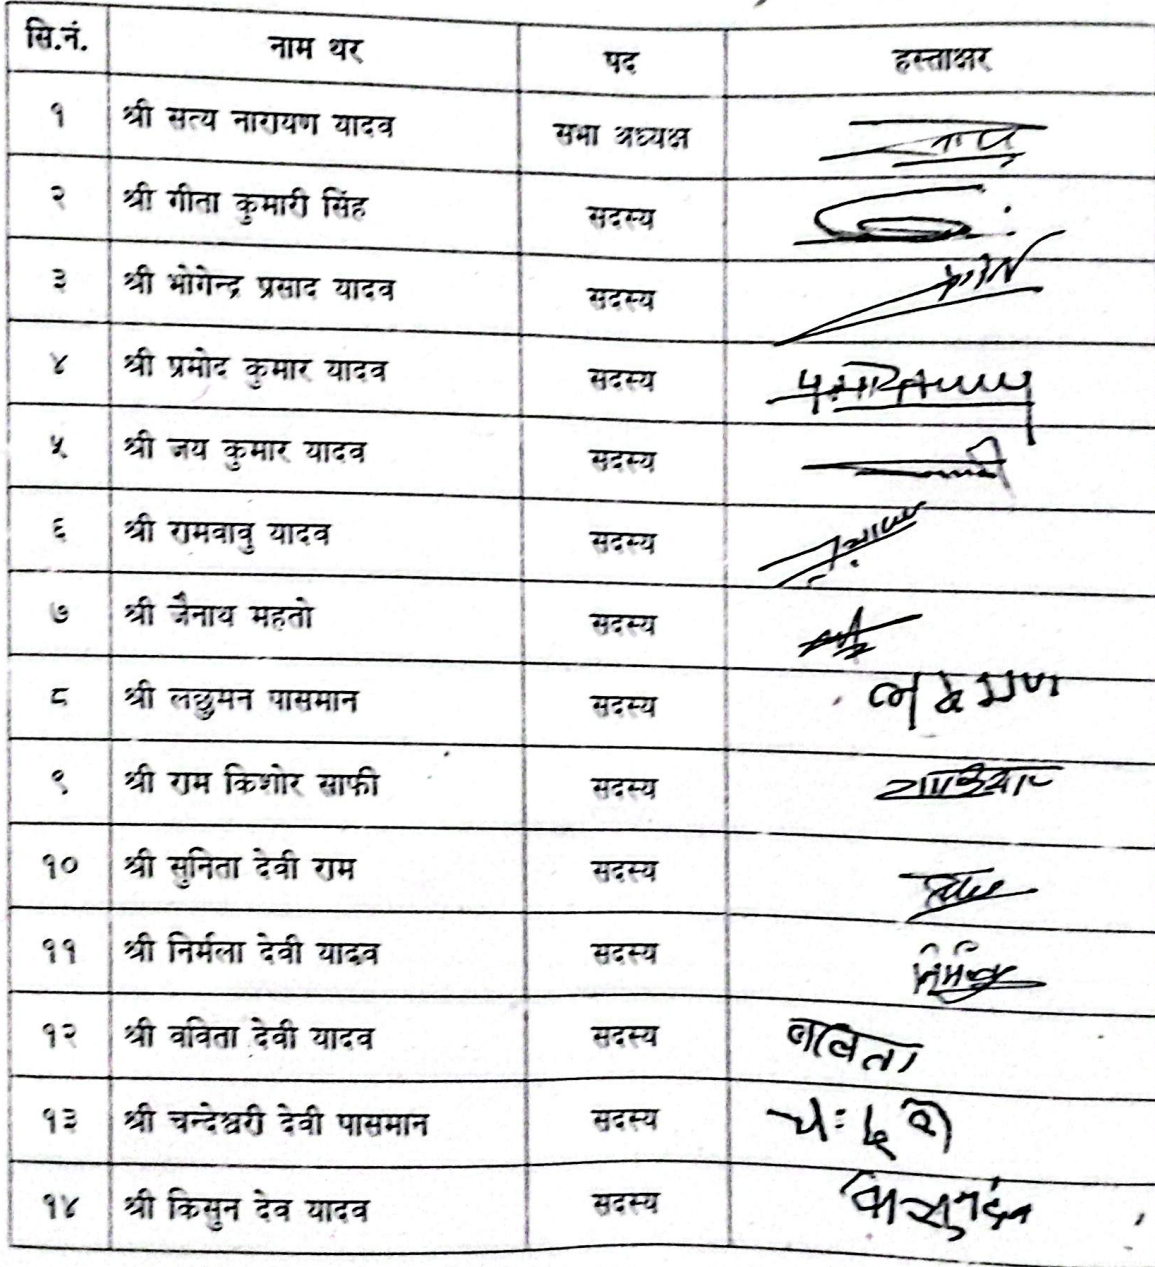 सि.नं. नाम थर पद हस्ताक्षर
१ श्री सत्य नारायण यादव सभा अध्यक्ष
२ श्री गीता कुमारी सिंह सदस्य
३ श्री भोगेन्द्र प्रसाद यादव सदस्य
४ श्री प्रमोद कुमार यादव सदस्य
५ श्री जय कुमार यादव सदस्य
६ श्री रामवावु यादव सदस्य
७ श्री जैनाथ महतो सदस्य
८ श्री लछुमन पासमान सदस्य
९ श्री राम किशोर साफी सदस्य
१० श्री सुनिता देवी राम सदस्य
११ श्री निर्मला देवी यादव सदस्य
१२ श्री वविता देवी यादव सदस्य
१३ श्री चन्देश्वरी देवी पासमान सदस्य
१४ श्री किसुन देव यादव सदस्य